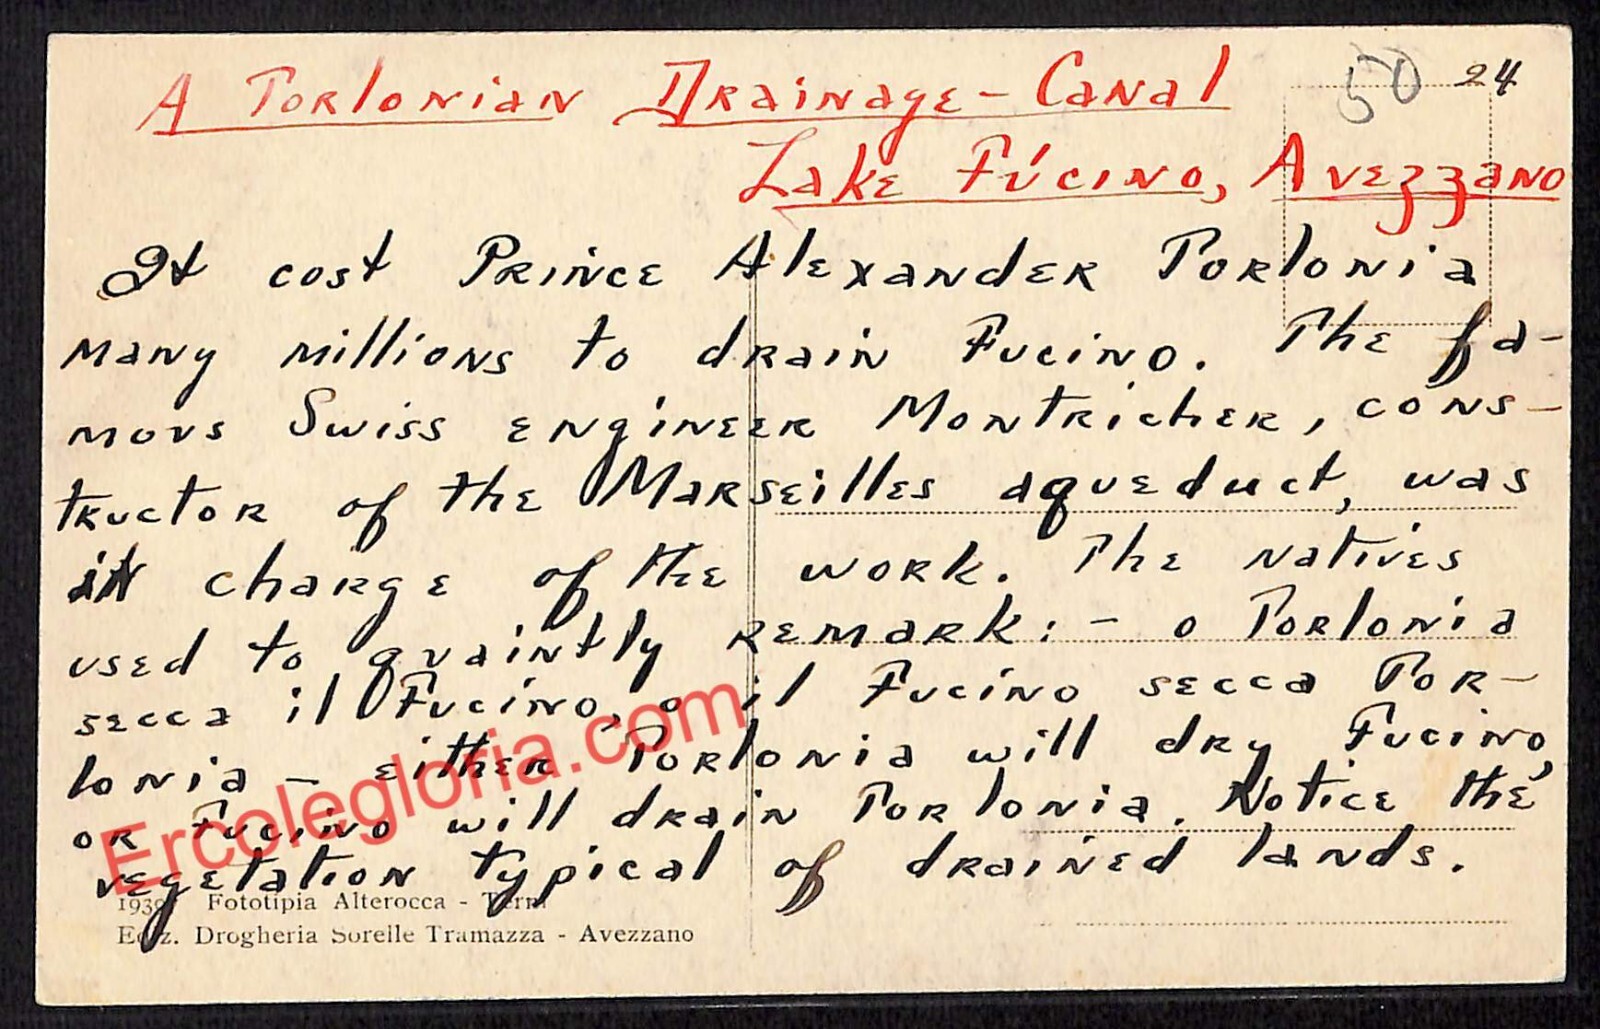 50 24
A Torlonian Drainage-Canal
Lake Fúcino, Avezzano
It cost Prince Alexander Torlonia
many millions to drain Fucino. The fa-
mous Swiss engineer Montricher, cons-
tructor of the Marseilles aqueduct, was
in charge of the work. The natives
used to quaintly remark: - o Torlonia
secca il Fucino, o il Fucino secca Tor-
lonia - either Torlonia will dry Fucino,
or Fucino will drain Torlonia. Notice the
vegetation typical of drained lands.
Fototipia Alterocca - Terni
Ediz. Drogheria Sorelle Tramazza - Avezzano
Ercolegloria.com